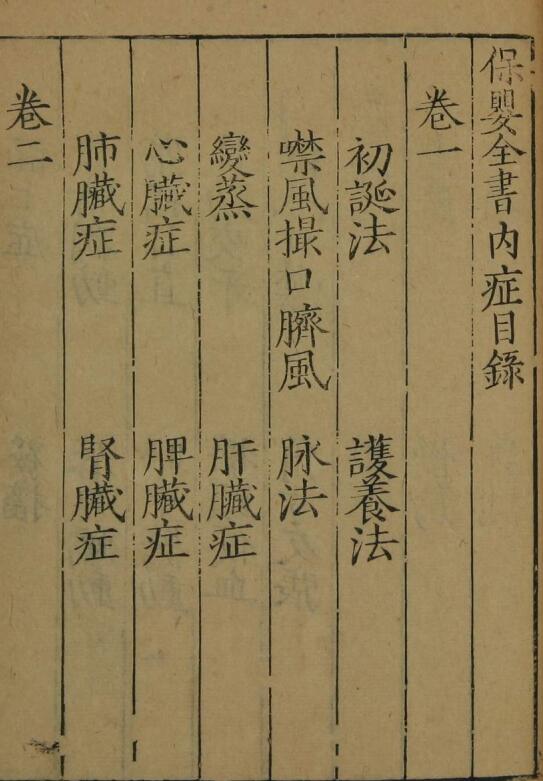 保嬰全書内症目錄
卷一
初誕法　護養法
噤風撮口臍風　脉法
變蒸　肝臟症
心臟症　脾臟症
肺臟症　腎臟症
卷二